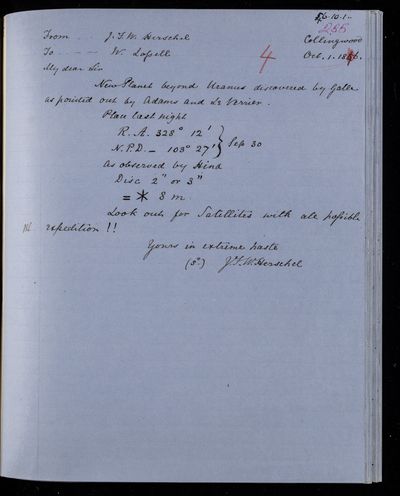 46.10.1.
255
From - J.F.W. Herschel Collingwood
To - - - - W. Lassell Oct. 1. 1846.
4
My dear Sir
New Planet beyond Uranus discovered by Galle
as pointed out by Adams and Le Verrier.
Place last night
R.A. 328° 12' } Sep 30
N.P.D. - 103° 27' }
as observed by Hind
Disc 2" or 3"
= * 8 m
Look out for Satellites with all possible
expedition !!
Yours in extreme haste
(Sd.) J.F.W. Herschel